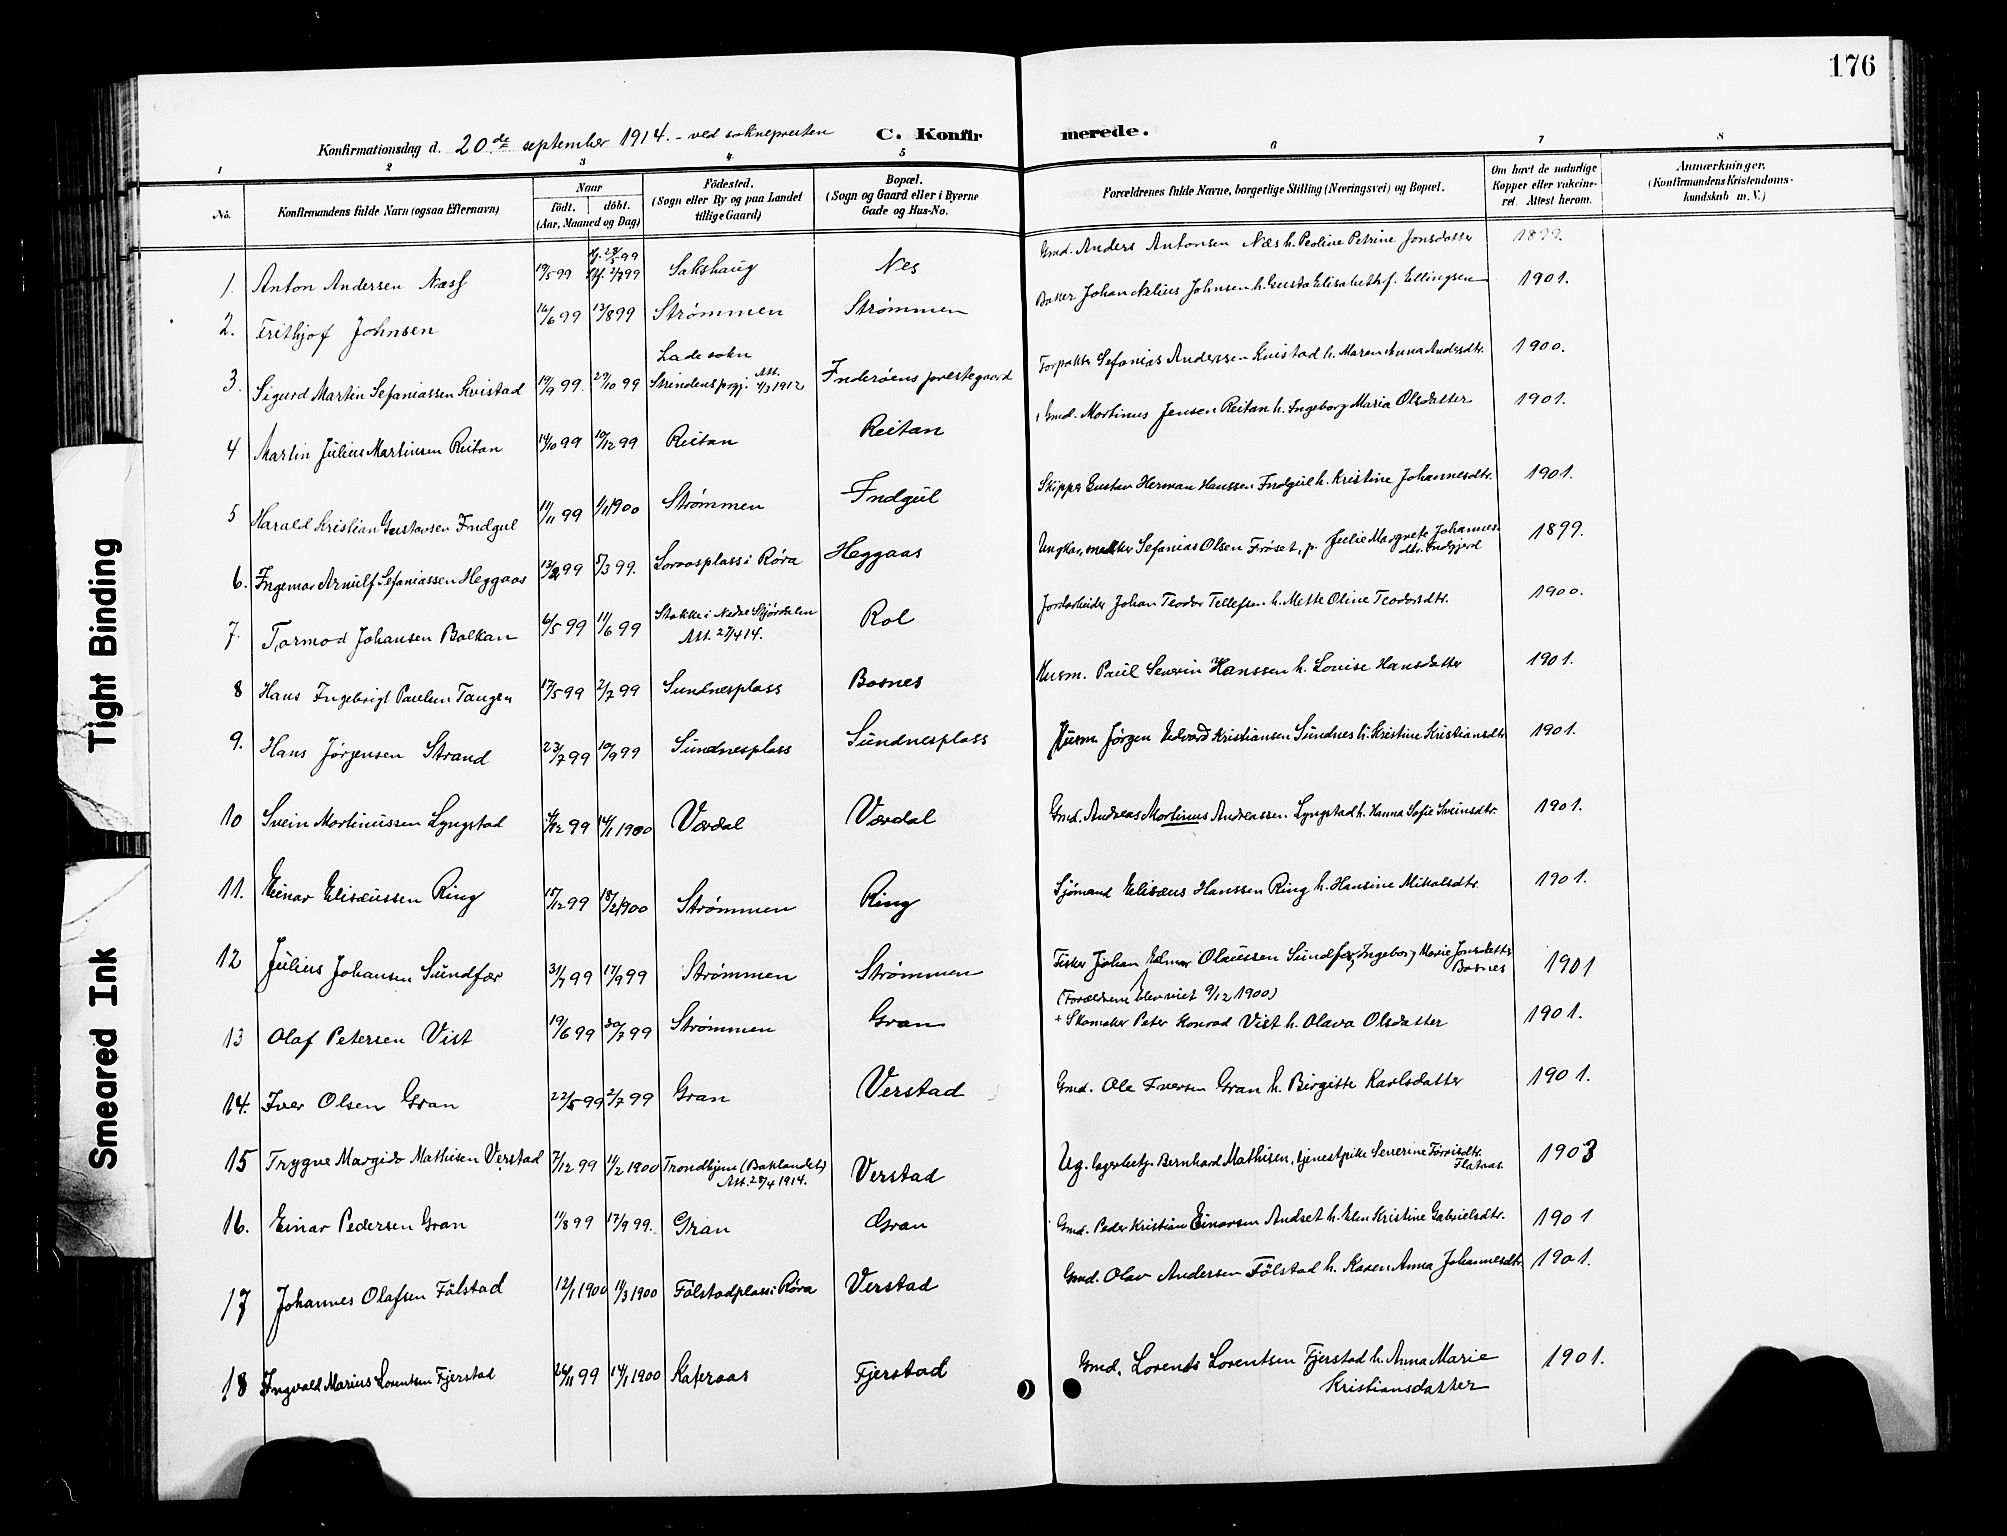 176
Konfirmationsdag d. 20de september 1914. - ved soknepresten C. Konfirmerede.
1 2 3 4 5 6 7 8
No. Konfirmandens fulde Navn (ogsaa Efternavn) Naar födt. döbt. (Aar, Maaned og Dag) Födested. (Sogn eller By og paa Landet tillige Gaard) Bopæl. (Sogn og Gaard eller i Byerne Gade og Hus-No. Forældrenes fulde Navne, borgerlige Stilling (Næringsvei) og Bopæl. Om havt de naturlige Kopper eller vaksineret. Attest herom. Anmærkninger. (Konfirmandens Kristendomskundskab m. V.)
1. Anton Andersen Næss 19/5 99 hj. 28/5 99 Stf. 2/7 99 Sakshaug Nes Gmd. Anders Antonsen Næs h. Peoline Petrine Jonsdatter 1899.
2. Frithjof Johnsen 16/6 99 13/8 99 Strømmen Strømmen Baker Johan Nelius Johnsen h. Gusta Elisabeth f. Ellingsen 1901.
3. Sigurd Martin Sefaniassen Kvistad 19/9 99. 29/10 99 Lade sokn Strindens prgj. Att. 4/3 1912 Inderøens prestegaard Forpakter Sefanias Anderssen Kvistad h. Maren Anna Andersdtr. 1900.
4 Martin Julius Martinsen Reitan 14/10 99 10/12 99 Reitan Reitan Gmd. Mortinus Jensen Reitan h. Ingeborg Maria Olsdatter 1901.
5 Harald Kristian Gustavsen Indgul 11/11 99 1/1 1900 Strømmen Indgul Skipper Gustav Herman Hanssen Indgul h. Kristine Johannesdtr. 1901.
6. Ingemar Arnulf Sefaniassen Heggaas 13/2 99 5/3 99. Loraasplass i Røra Heggaas Ungkar, Sefanias Olsen Frøset, p. Julie Margrete Johannesdtr. Indgjerd 1899.
7. Tormod Johansen Balkan 6/5 99 11/6 99 Stokke i Nedre Stjørdalen Att. 27/4 14. Rol Jordarbeider Johan Teodor Tellefsen h. Mette Oline Teodorsdtr. 1900.
8 Hans Ingebrigt Paulsen Tangen 17/5 99 2/7 99 Sundnesplass Bosnes Husm. Paul Severin Hanssen h. Louise Hansdatter 1901.
9. Hans Jørgensen Strand 23/7 99 10/9 99 Sundnesplass Sundnesplass Husm. Jørgen Edvard Kristiansen Sundnes h. Kristine Kristiansdtr 1901.
10 Svein Mortinussen Lyngstad 4/12 99 14/1 1900 Værdal Værdal Gmd. Andreas Mortinus Andreassen Lyngstad h. Hanna Sofie Sveinsdtr. 1901.
11. Einar Elisæussen Ring 15/12 99 18/2 1900 Strømmen Ring Sjømand Elisæus Hanssen Ring h. Hansine Mikalsdtr. 1901.
12 Julius Johansen Sundfær 31/7 99 17/9 99 Strømmen Strømmen Fisker Johan Elmar Olaussen Sundfær, Ingeborg Marie Jonsdatter Bosnes 1901
(Forældrene blev viet 9/12 1900)
13 Olaf Petersen Vist 19/6 99 30/7 99 Strømmen Gran + Skomaker Peter Konrad Vist h. Olava Olsdatter 1901.
14. Iver Olsen Gran 22/5 99 2/7 99 Gran Verstad Gmd. Ole Iversen Gran h. Birgitte Karlsdatter 1901.
15 Trygve Margido Mathisen Verstad 7/12 99 11/2 1900 Trondhjem (Baklandet) Att. 28/4 1914. Verstad Ug. lagerbetj. Bernhard Mathisen, tjenestpike Severine Torrisdtr. Flataas. 1903
16. Einar Pedersen Gran 11/8 99 17/9 99. Gran Gran Gmd. Peder Kristian Einarsen Andset h. Elen Kristine Gabrielsdtr. 1901
17 Johannes Olafsen Fölstad 12/1 1900 11/3 1900 Fölstadplass i Røra Verstad Gmd. Olav Andersen Fölstad h. Karen Anna Johannesdtr 1901.
18 Ingvald Marius Lorentsen Fjerstad 26/11 99 14/1 1900 Kateraas Fjerstad Gmd. Lorents Lorentsen Fjerstad h. Anna Marie Kristiansdatter 1901.
Tight Binding
Smeared Ink